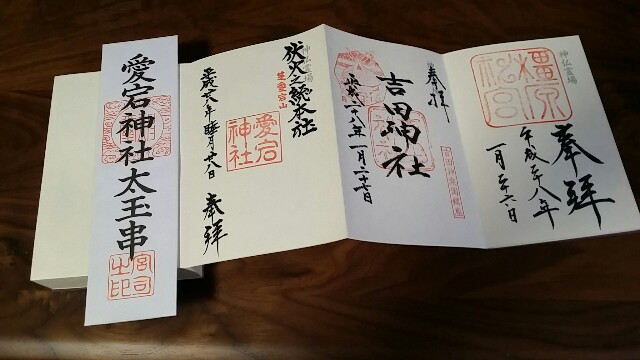 神仏霊場
奉拝
橿原神宮
平成二十八年
一月二十六日
奉拝
吉田神社
平成二八年一月二十七日
神仏霊場
伏火之総本社
愛宕山
愛宕神社
平成二八年睦月廿八日
奉拝
愛宕神社太玉串
宮司之印